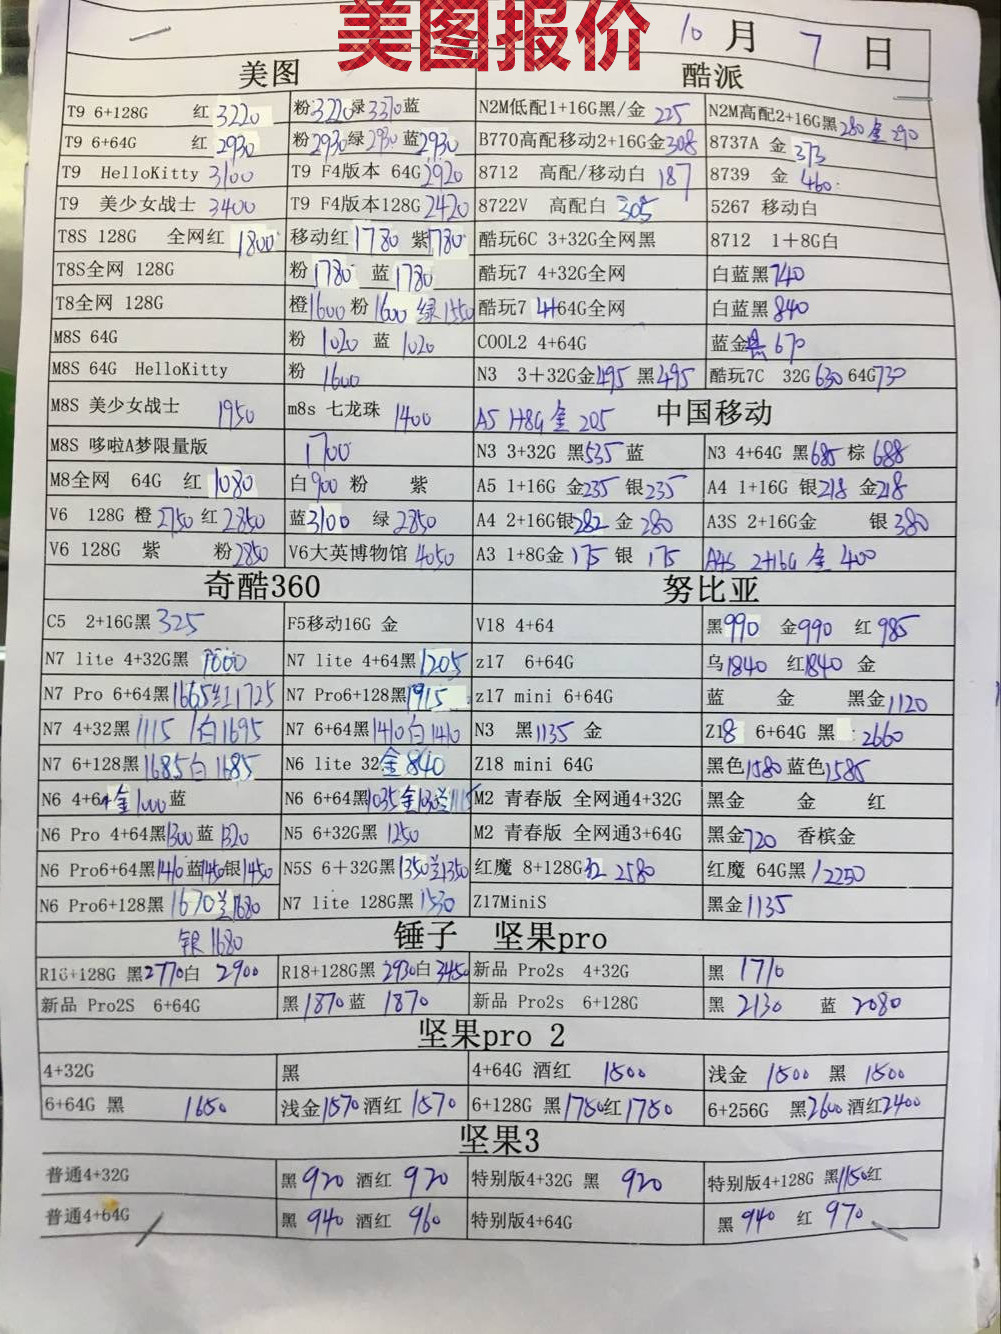 美图报价
10月7日
美图 酷派
T9 6+128G 红3220 粉3220绿3370蓝 N2M低配1+16G黑/金 225 N2M高配2+16G黑280金290
T9 6+64G 红2930 粉2930绿2930蓝2930 B770高配移动2+16G金308 8737A 金 373
T9 HelloKitty 3100 T9 F4版本 64G2920 8712 高配/移动白 187 8739 金 460
T9 美少女战士 3400 T9 F4版本128G2420 8722V 高配白 305 5267 移动白
T8S 128G 全网红 1800 移动红1780 紫1780 酷玩6C 3+32G全网黑 8712 1+8G白
T8S全网 128G 粉1780 蓝1780 酷玩7 4+32G全网 白蓝黑740
T8全网 128G 橙1600粉1600绿1550 酷玩7 4+64G全网 白蓝黑840
M8S 64G 粉 1020 蓝 1020 COOL2 4+64G 蓝金黑 670
M8S 64G HelloKitty 粉 1600 N3 3+32G金495 黑495 酷玩7C 32G630 64G730
M8S 美少女战士 1950 m8s 七龙珠 1400 A5 1+8G 金 205 中国移动
M8S 哆啦A梦限量版 1700 N3 3+32G 黑535蓝 N3 4+64G 黑685棕 688
M8全网 64G 红 1080 白900粉 紫 A5 1+16G 金235 银235 A4 1+16G 银218 金218
V6 128G 橙2750红2850 蓝3100 绿2850 A4 2+16G银282 金 280 A3S 2+16G金 银380
V6 128G 紫 粉2850 V6大英博物馆 4050 A3 1+8G金 175 银 175 A4S 2+16G 金 400
奇酷360 努比亚
C5 2+16G黑 325 F5移动16G 金 V18 4+64 黑990 金990 红985
N7 lite 4+32G黑 1000 N7 lite 4+64黑1205 z17 6+64G 乌1840 红1840 金
N7 Pro 6+64黑1665红1725 N7 Pro6+128黑1915 z17 mini 6+64G 蓝 金 黑金1120
N7 4+32黑1115 白1695 N7 6+64黑1410白1410 N3 黑1135 金 Z18 6+64G 黑 2660
N7 6+128黑1685白1685 N6 lite 32金840 Z18 mini 64G 黑色1580蓝色1585
N6 4+64金1000蓝 N6 6+64黑1035金1030兰1115 M2 青春版 全网通4+32G 黑金 金 红
N6 Pro 4+64黑1300蓝1320 N5 6+32G黑 1250 M2 青春版 全网通3+64G 黑金720 香槟金
N6 Pro6+64黑1410蓝1450银1450 N5S 6+32G黑1350兰1350 红魔 8+128G红 2580 红魔 64G黑 2250
N6 Pro6+128黑 1670兰1680 N7 lite 128G黑1530 Z17MiniS 黑金1135
银1680 锤子 坚果pro
R1 6+128G 黑2770白 2900 R1 8+128G黑 2930白3450 新品 Pro2s 4+32G 黑 1710
新品 Pro2S 6+64G 黑1870蓝 1870 新品 Pro2s 6+128G 黑 2130 蓝 2080
坚果pro 2
4+32G 黑 4+64G 酒红 1500 浅金 1500 黑 1500
6+64G 黑 1650 浅金1570酒红1570 6+128G 黑1750红1750 6+256G 黑2600酒红2400
坚果3
普通4+32G 黑 920 酒红 920 特别版4+32G 黑 920 特别版4+128G 黑1150红
普通4+64G 黑 940 酒红 960 特别版4+64G 黑 940 红 970